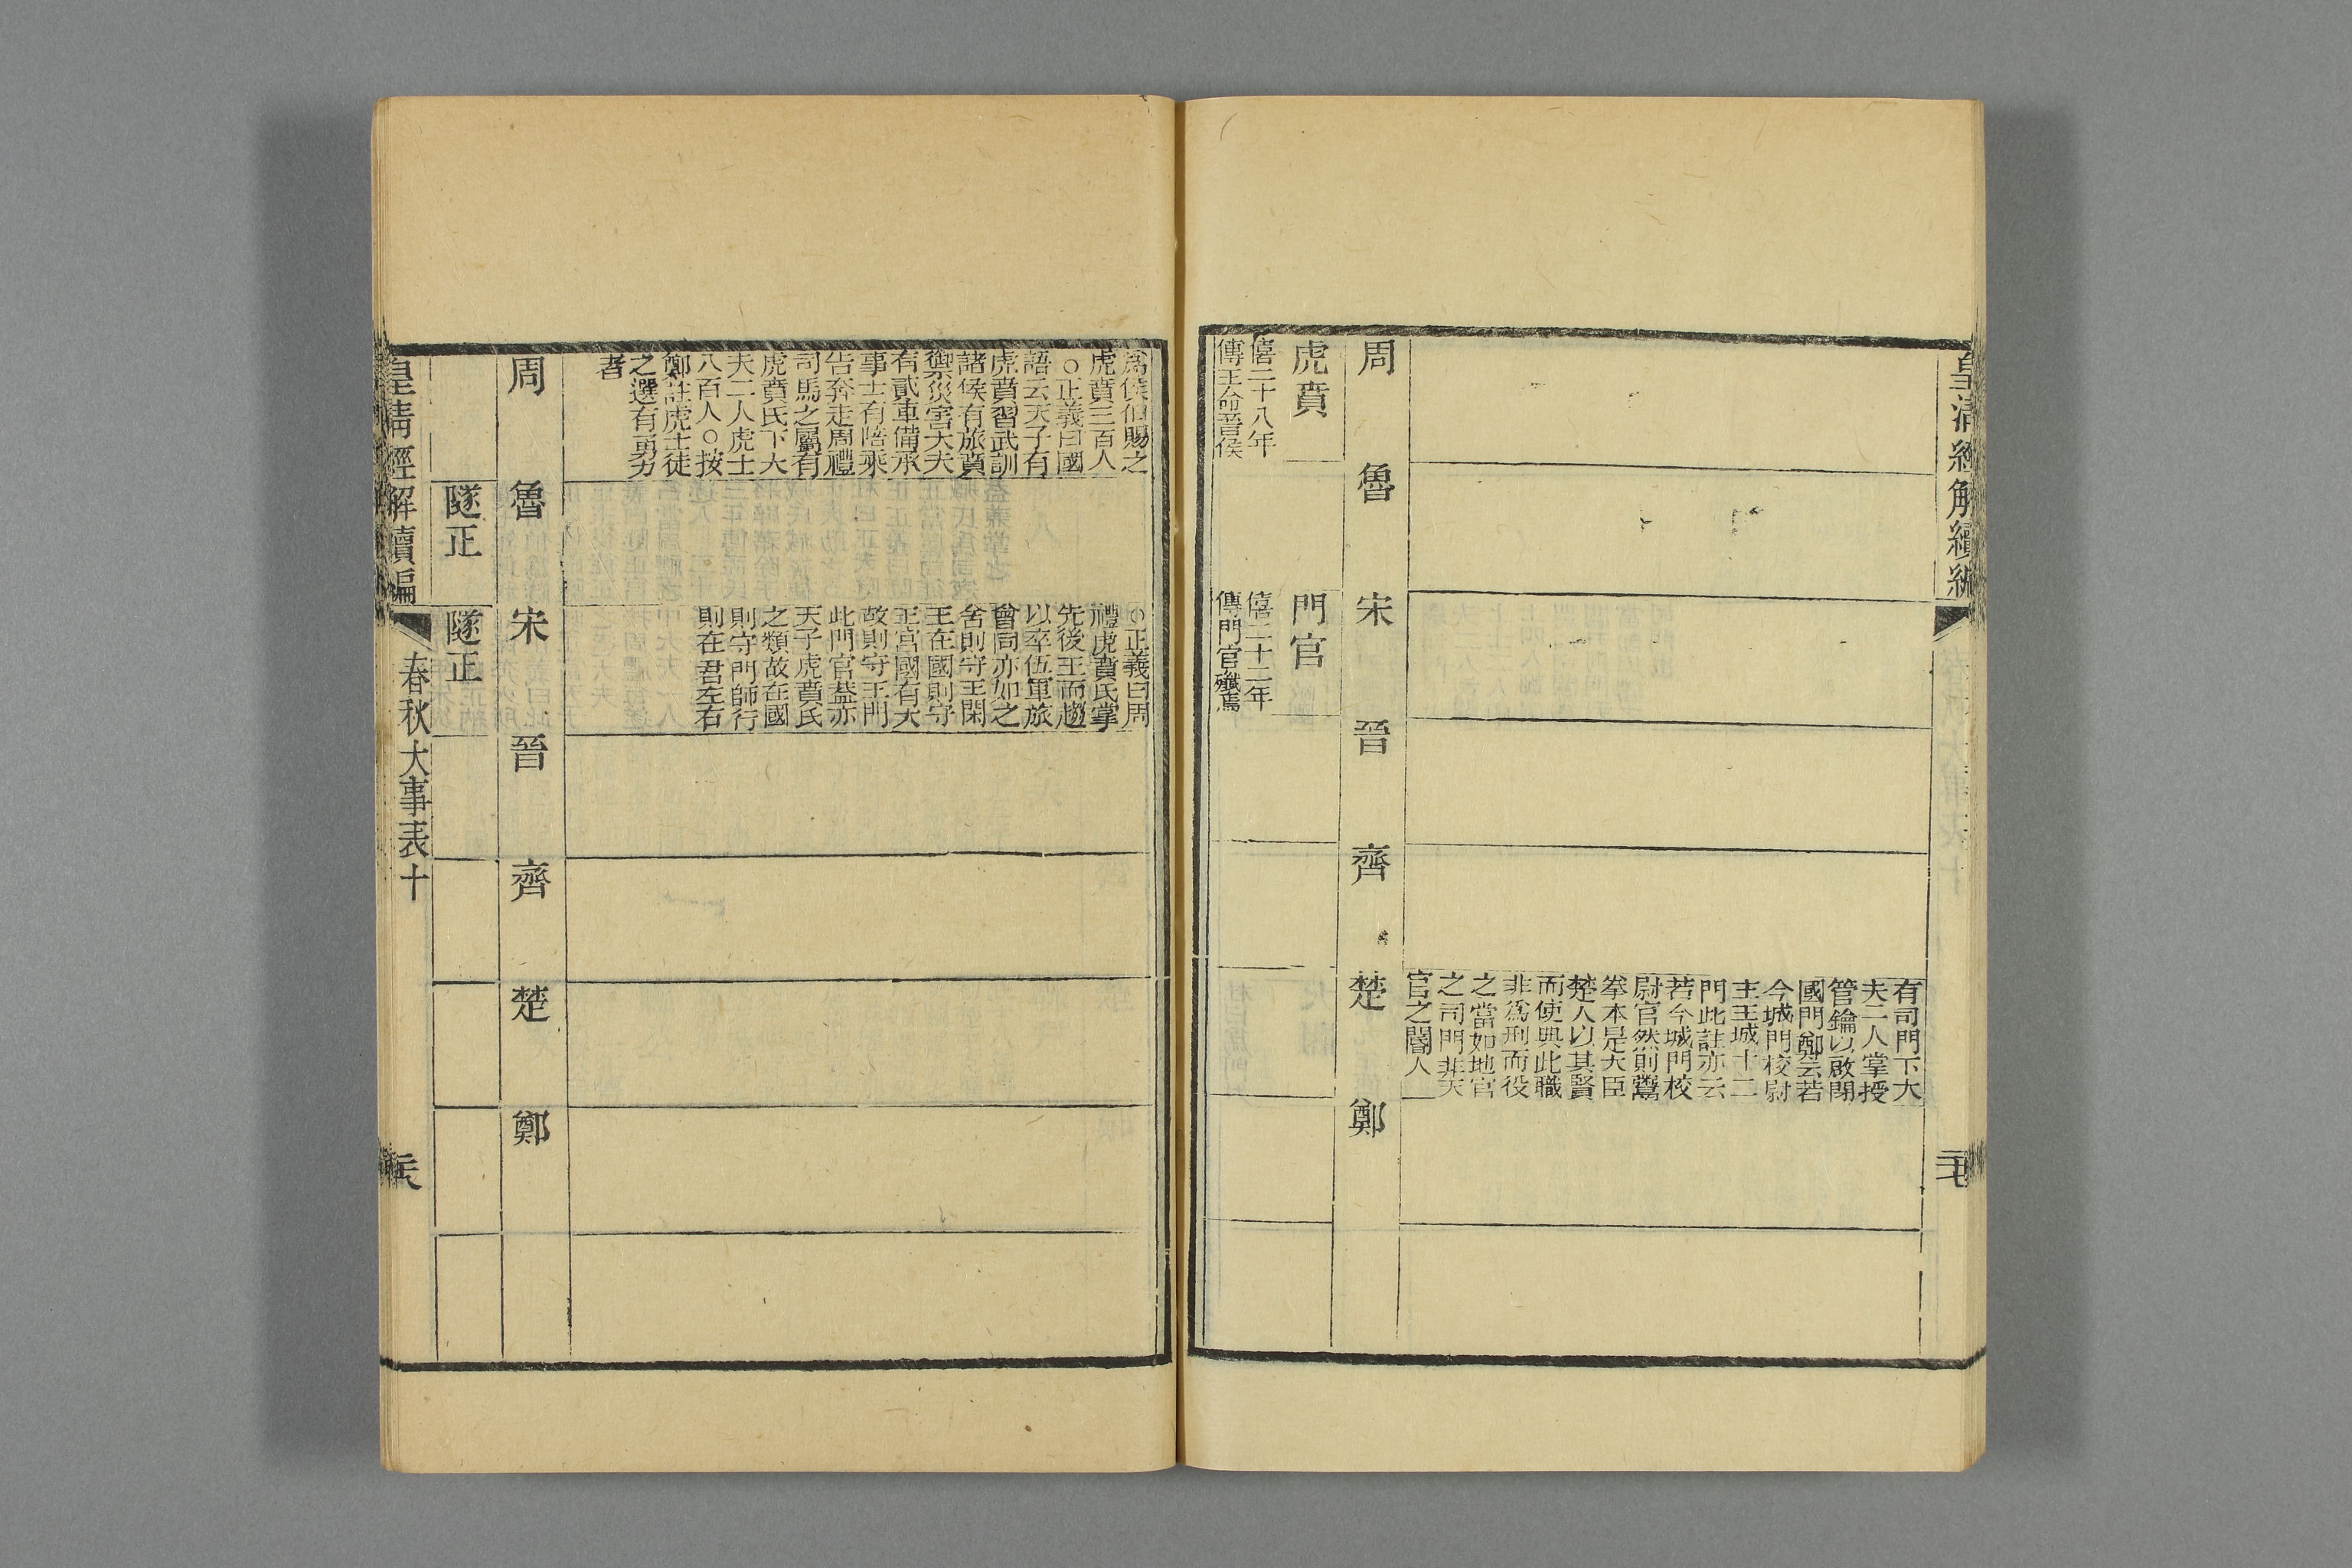 皇清經解續編
有司門下大
夫二人掌授
管鑰以啟閉
國門鄭云若
今城門校尉
主王城十二
門此註亦云
若今城門校
尉官然則鬻
拳本是大臣
楚人以其賢
而使典此職
非爲刑而役
之當如地官
之司門非天
官之閽人
周
魯
宋
晉
齊
楚
鄭
虎賁
僖二十八年
傳王命晉侯
門官
僖二十二年
傳門官殲焉
爲侯伯賜之
虎賁三百人
○正義曰國
語云天子有
虎賁習武訓
諸侯有旅賁
禦災害大夫
有貳車備承
事士有陪乘
告奔走周禮
司馬之屬有
虎賁氏下大
夫二人虎士
八百人○按
鄭註虎士徒
之選有勇力
者
○正義曰周
禮虎賁氏掌
先後王而趨
以卒伍軍旅
會同亦如之
舍則守王閑
王在國則守
王宮國有大
故則守王門
此門官蓋亦
天子虎賁氏
之類故在國
則守門師行
則在君左右
周
魯
宋
晉
齊
楚
鄭
隧正
隧正
皇清經解續編
春秋大事表十